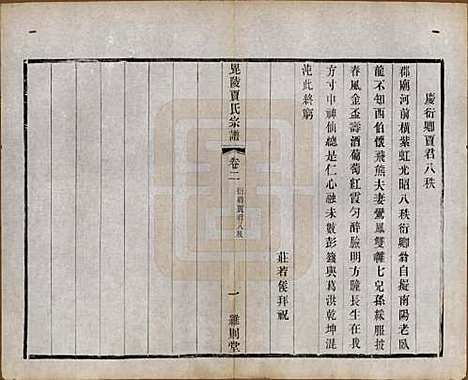 慶衍卿賈君八秩
郡廟河前橫紫虹光昭八秩衍卿翁自擬南陽老臥
龍不知西伯懷飛熊夫妻鸞鳳雙離七兒孫綵服披
春風金盃壽酒葡萄紅霞勻醉臉明方瞳長生在我
方寸中神仙總是仁心融未數彭錢與葛洪乾坤混
沌此終窮
莊若俊拜祝
毘陵賈氏宗譜
卷二
衍卿賈君八秩
一
雍則堂